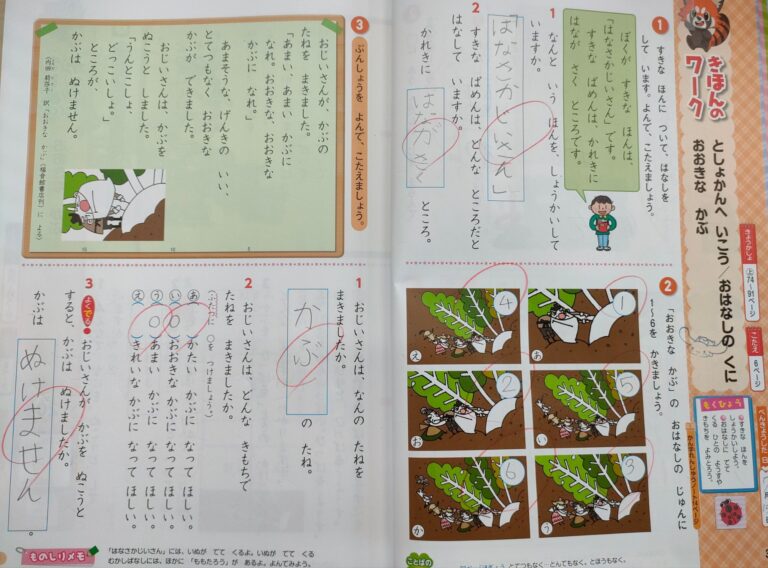 きほんの
ワーク
としょかんへ いこう/おはなしの くに
おおきな かぶ
きょうかしょ
上74〜91ページ
こたえ
6ページ
べんきょうした 日
もくひょう
すきな ほんを
しょうかいしよう。
おはなしに でて
くる ひとの ようすや
きもちを よみとろう。
1
すきな ほんに ついて、はなしを
して います。よんで、こたえましょう。
ぼくが すきな ほんは、
「はなさかじいさん」です。
すきな ばめんは、かれきに
はなが さく ところです。
1 なんと いう ほんを、しょうかいして
いますか。
「はなさかじいさん」
2 すきな ばめんは、どんな ところだと
はなして いますか。
かれきに はながさく ところ。
2
「おおきな かぶ」の おはなしの じゅんに
1〜6を かきましょう。
1
あ
5
い
3
う
4
え
2
お
6
か
ことばの
3
ぶんしょうを よんで、こたえましょう。
おじいさんが、かぶの
たねを まきました。
「あまい、あまい かぶに
なれ。おおきな、おおきな
かぶに なれ。」
あまそうな、げんきの いい、
とてつもなく おおきな
かぶが できました。
おじいさんは、かぶを
ぬこうと しました。
「うんとこしょ、
どっこいしょ。」
ところが、
かぶは ぬけません。
5
10
15
1 おじいさんは、なんの たねを
まきましたか。
かぶ の たね。
2 おじいさんは、どんな きもちで
たねを まきましたか。
(ふたつに ○を つけましょう。)
あ かたい かぶに なって ほしい。
い ○ おおきな かぶに なって ほしい。
う ○ あまい かぶに なって ほしい。
え きれいな かぶに なって ほしい。
3 よくでる おじいさんが かぶを ぬこうと
すると、かぶは ぬけましたか。
かぶは ぬけません。
ものしりメモ
「はなさかじいさん」には、いぬが でて くるよ。いぬが でて くる
むかしばなしには、ほかに「ももたろう」が あるよ。よんでみよう。